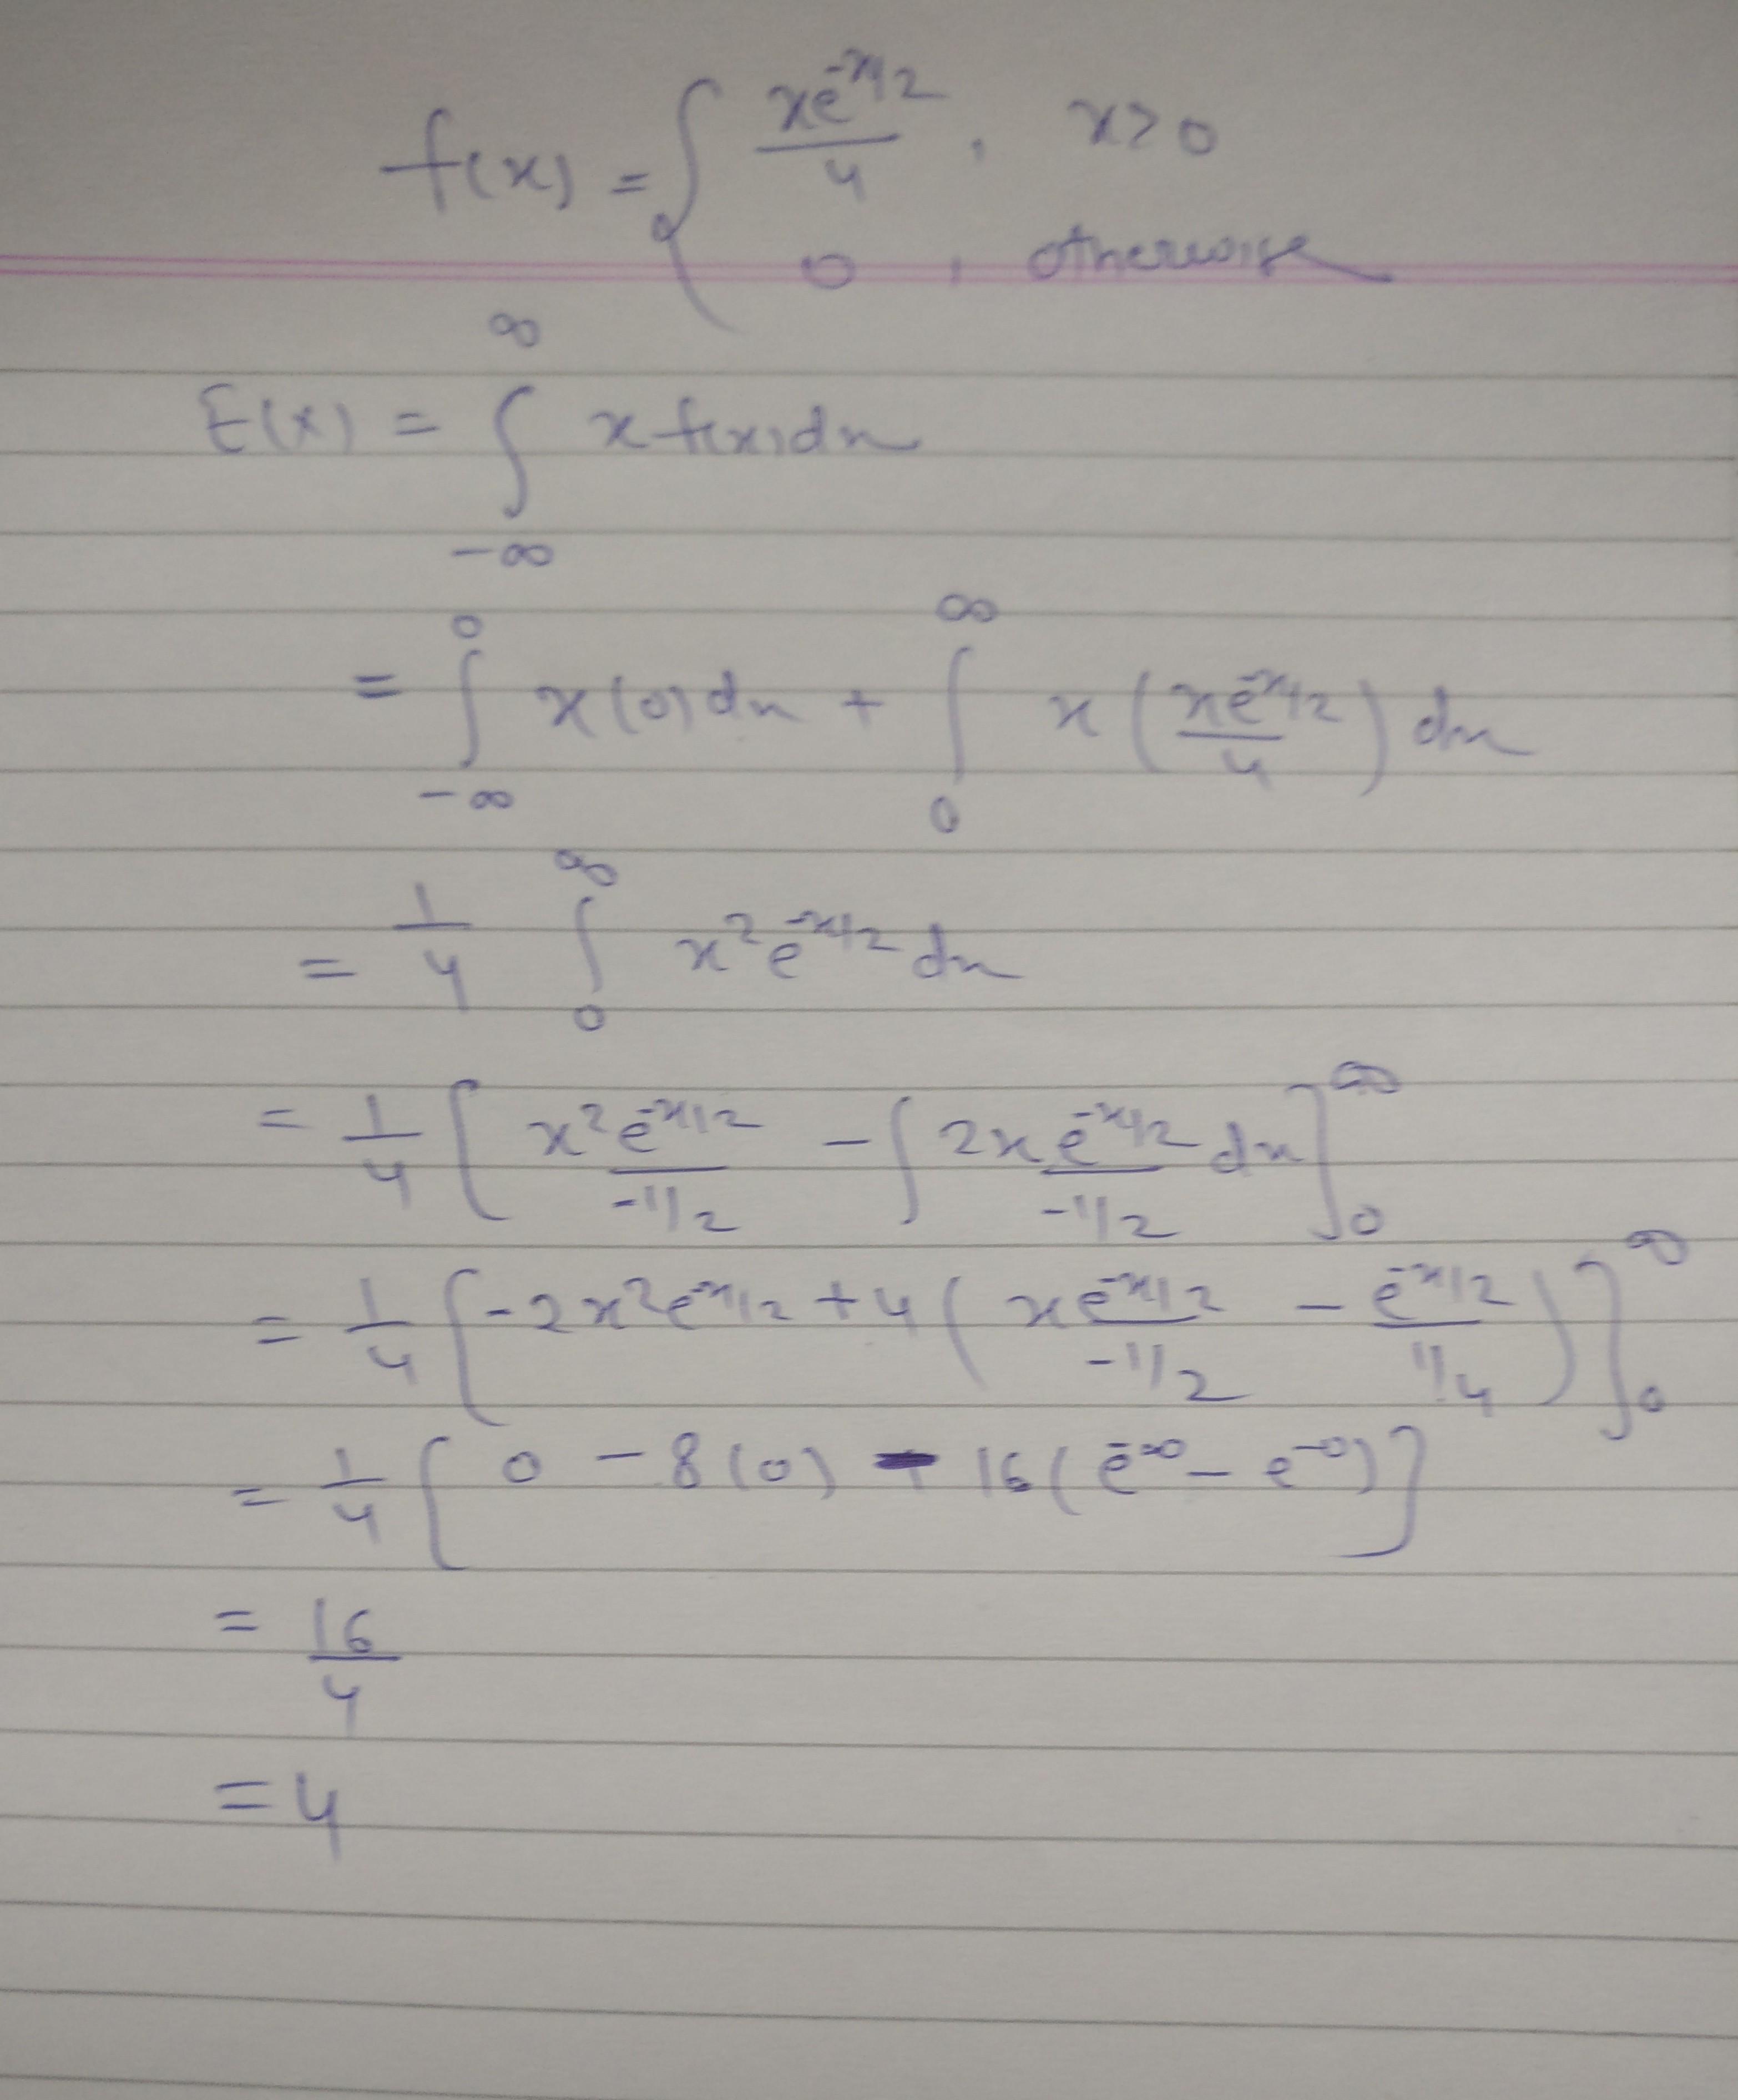 f(x) = { xe^{-x/2}/4 , x>0
0 , otherwise
E(x) = ∫_{-∞}^{∞} x f(x) dx
= ∫_{-∞}^{0} x(0) dx + ∫_{0}^{∞} x (xe^{-x/2}/4) dx
= 1/4 ∫_{0}^{∞} x² e^{-x/2} dx
= 1/4 [ x² e^{-x/2}/(-1/2) - ∫ 2x e^{-x/2}/(-1/2) dx ]_{0}^{∞}
= 1/4 [ -2x² e^{-x/2} + 4 ( x e^{-x/2}/(-1/2) - e^{-x/2}/(1/4) ) ]_{0}^{∞}
= 1/4 [ 0 - 8(0) - 16 ( e^{-∞} - e^{-0} ) ]
= 16/4
= 4